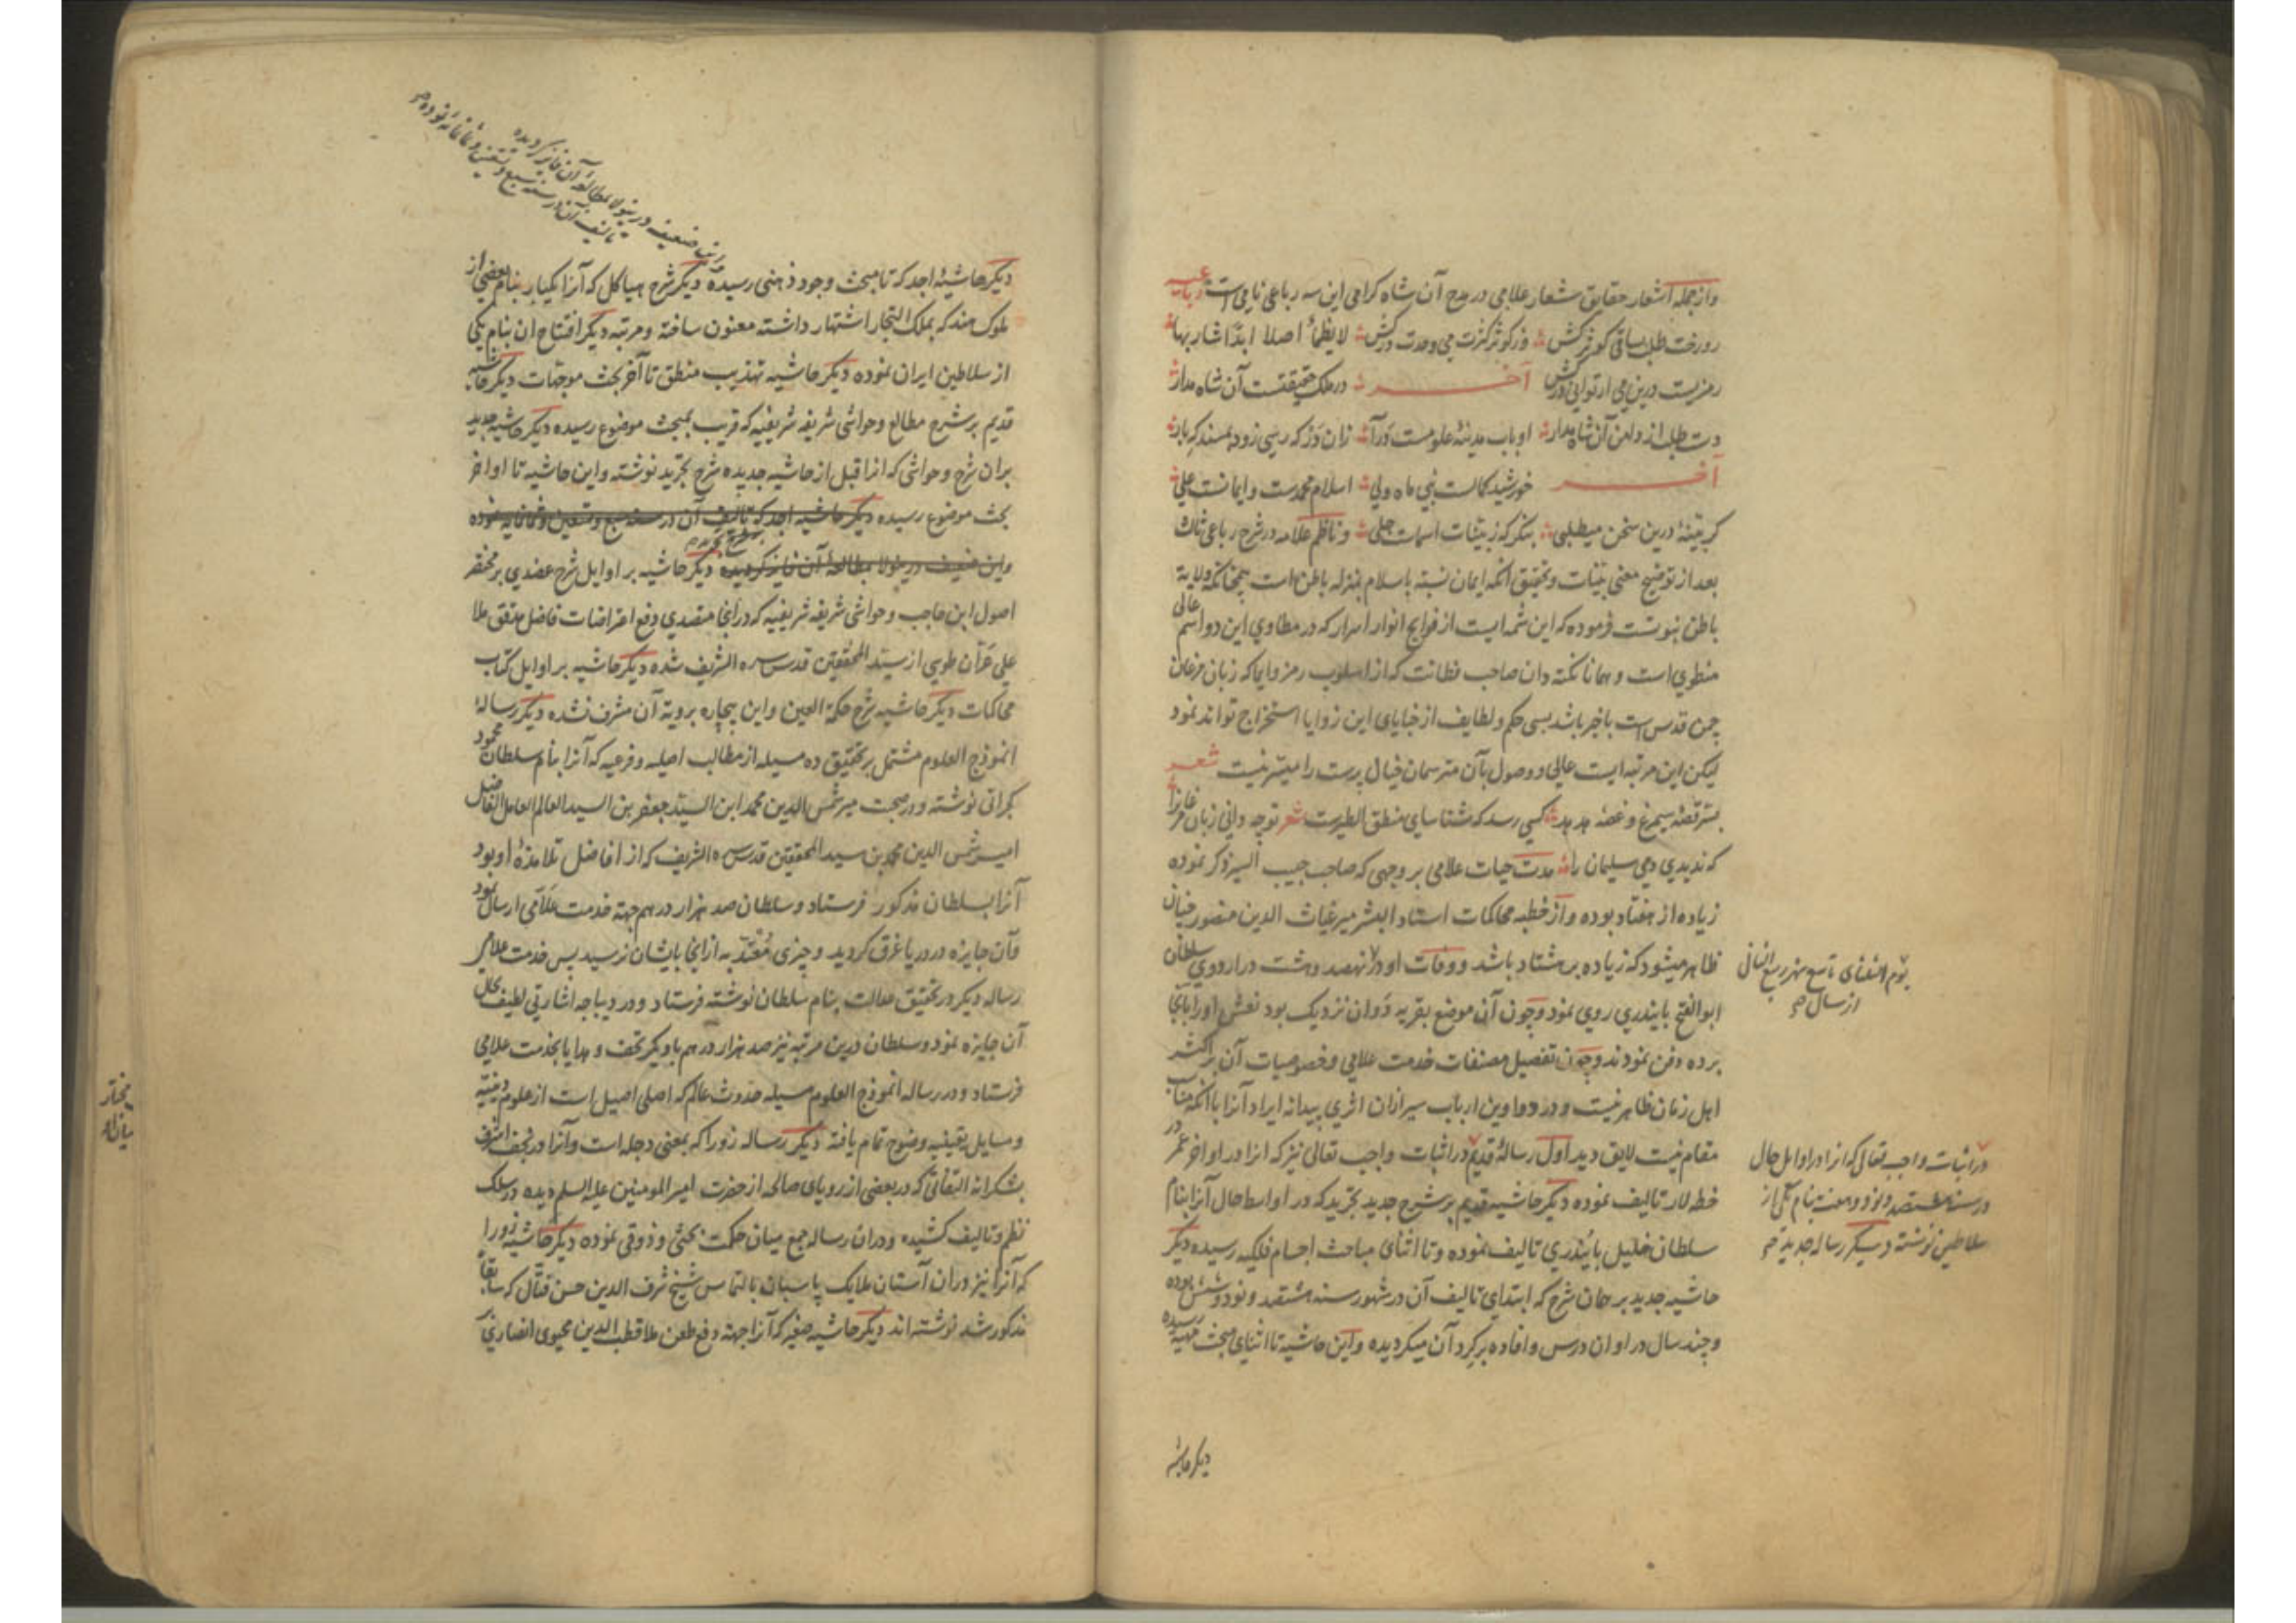 وازجمله اشعار حقایق شعار علامی در مدح آن شاه کرامی این سه رباعی نامی است رباعیه
روزخت طلب ساقی کوثر کش وز کوثر کثرت می وحدت درکش لا یظمأ اصلا ابدا شاربها
رمزیست درین می ار توانی درکش آخر در ملک حقیقتست آن شاه مدار
دست طلب از دامن آن شاه مدار او باب مدینه علومست درآ زان در که رسی زود بمسند که بار
آخر خورشید کمالست نبی ماه ولی اسلام محمدست و ایمانست علی
کر بینهٔ درین سخن میطلبی بنکر که ز بینات اسماست جلی و ناظم علامه در شرح رباعی ثالث
بعد از توضیح معنی بینات و تحقیق انکه ایمان نسبة باسلام بمنزله باطن است همچنانکه ولایة
باطن نبوتست فرموده که این شمه ایست از فوایح انوار اسرار که در مطاوی این دو اسم عالی
منطوی است و همانا نکته دان صاحب فطانت که از اسلوب رمز و ایما که زبان مرغان
چمن قدس است باخبر باشد بسی حکم و لطایف از خبایای این زوایا استخراج تواند نمود
لیکن این مرتبه ایست عالی و وصول بآن مترسمان خیال پرست را میسر نیست شعر
بسر قصهٔ سیمرغ و غصهٔ هدهد کسی رسد که شناسای منطق الطیرست شعر تو چه دانی زبان مرغانرا
که ندیدی دمی سلیمان را مدت حیات علامی بر وجهی که صاحب حبیب السیر ذکر نموده
زیاده از هفتاد بوده و از خطبه محاکمات استاد البشر میر غیاث الدین منصور چنان
ظاهر میشود که زیاده بر هشتاد باشد و وفات او در نهصد و هشت در اردوی سلطان
یوم الثلثای تاسع شهر ربیع الثانی
از سال صح
ابوالفتح بایندری روی نمود و چون آن موضع بقریه دوان نزدیک بود نعش او را بانجا
برده دفن نمودند و چون تفصیل مصنفات خدمت علامی و خصوصیات آن بر اکثر
اهل زمان ظاهر نیست و در دواوین ارباب سیر ازان اثری پیدا نه ایراد آنرا باآنکه مناسب
مقام نیست لایق دید اول رسالهٔ قدیم در اثبات واجب تعالی نیز که انرا در اواخر عمر در
در اثبات واجب تعالی که انرا در اوایل حال
در سنه هشتصد و نود و معنون بنام یکی از
سلاطین نوشته دیگر رساله جدیده صح
خطه لار تالیف نموده دیکر حاشیه قدیم بر شرح جدید تجرید که در اواسط حال آنرا بنام
سلطان خلیل بایندری تالیف نموده و تا اثنای مباحث اجسام فلکیه رسیده دیکر
حاشیه جدید بر همان شرح که ابتدای تالیف آن در شهور سنه هشتصد و نود و شش بوده
و چند سال در اوان درس و افاده بر کرد آن میکردیده و این حاشیه تا اثنای مبحث رسیده
دیکر حاشیه
دیکر حاشیهٔ اجد که تا مبحث وجود ذهنی رسیده دیکر شرح هیاکل که آنرا یکبار بنام بعضی از
این ضعیف درینولا بمطالعهٔ آن فایز کردیده
تالیف آن در سنه سبع و تسعین و ثمانمائه نموده صح
ملوک هند که بملک التجار اشتهار داشته معنون ساخته و مرتبه دیکر افتتاح ان بنام یکی
از سلاطین ایران نموده دیکر حاشیه تهذیب منطق تا آخر بحث موجهات دیکر حاشیه
قدیم بر شرح مطالع و حواشی شریفه شریفیه که قریب بمبحث موضوع رسیده دیکر حاشیه جدید
بران شرح و حواشی که انرا قبل از حاشیه جدیده شرح تجرید نوشته و این حاشیه تا اواخر
بحث موضوع رسیده دیکر حاشیه اجد که تالیف آن در سنه سبع و تسعین و ثمانمایه نموده
واین ضعیف درینولا بمطالعهٔ آن فایز کردیده دیکر حاشیه بر اوایل شرح عضدی بر مختصر
اصول ابن حاجب و حواشی شریفه شریفیه که درانجا متصدی دفع اعتراضات فاضل مدقق ملا
علی عران طوسی از سید المحققین قدس سره الشریف شده دیکر حاشیه بر اوایل کتاب
محاکمات دیکر حاشیه شرح حکمة العین و این بیچاره برویة آن مشرف نشده دیکر رساله
انموذج العلوم مشتمل بر تحقیق ده مسیله از مطالب اصلیه و فرعیه که آنرا بنام سلطان محمود
کجراتی نوشته و در صحبت میر شمس الدین محمد ابن السید جعفر بن السید العالم العامل الفاضل
امیر شمس الدین محمد بن سید المحققین قدس سره الشریف که از افاضل تلامذهٔ او بود
آنرا بسلطان مذکور فرستاد و سلطان صد هزار درهم جهة خدمت علامی ارسال نمود
وآن جایزه در دریا غرق کردید و چیزی معتد به ازانجا بایشان نرسید پس خدمت علامی
رساله دیکر در تحقیق عدالت بنام سلطان نوشته فرستاد و در دیباجه اشارتی لطیف بحال
آن جایزه نمود و سلطان درین مرتبه نیز صد هزار درهم با دیکر تحف و هدایا بخدمت علامی
فرستاد و در رساله انموذج العلوم مسیله حدوث عالم که اصلی اصیل است از علوم دینیه
و مسایل یقینیه وضوح تمام یافته دیکر رساله زورا که بمعنی دجله است و آنرا در نجف اشرف
بشکرانه التفاتی که در بعضی از رویای صالحه از حضرت امیر المومنین علیه السلم دیده در سلک
نظم و تالیف کشیده و دران رساله جمع میان حکمت بحثی و ذوقی نموده دیکر حاشیه زورا
که آنرا نیز دران آستان ملایک پاسبان بالتماس شیخ شرف الدین حسن فتال که سابقا
مذکور شد نوشته اند دیکر حاشیه صغیر که آنرا جهته دفع طعن ملا قطب الدین محیوی انصاری